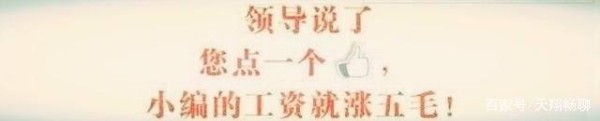 领导说了
您点一个👍，
小编的工资就涨五毛！
百家号/天翔畅聊